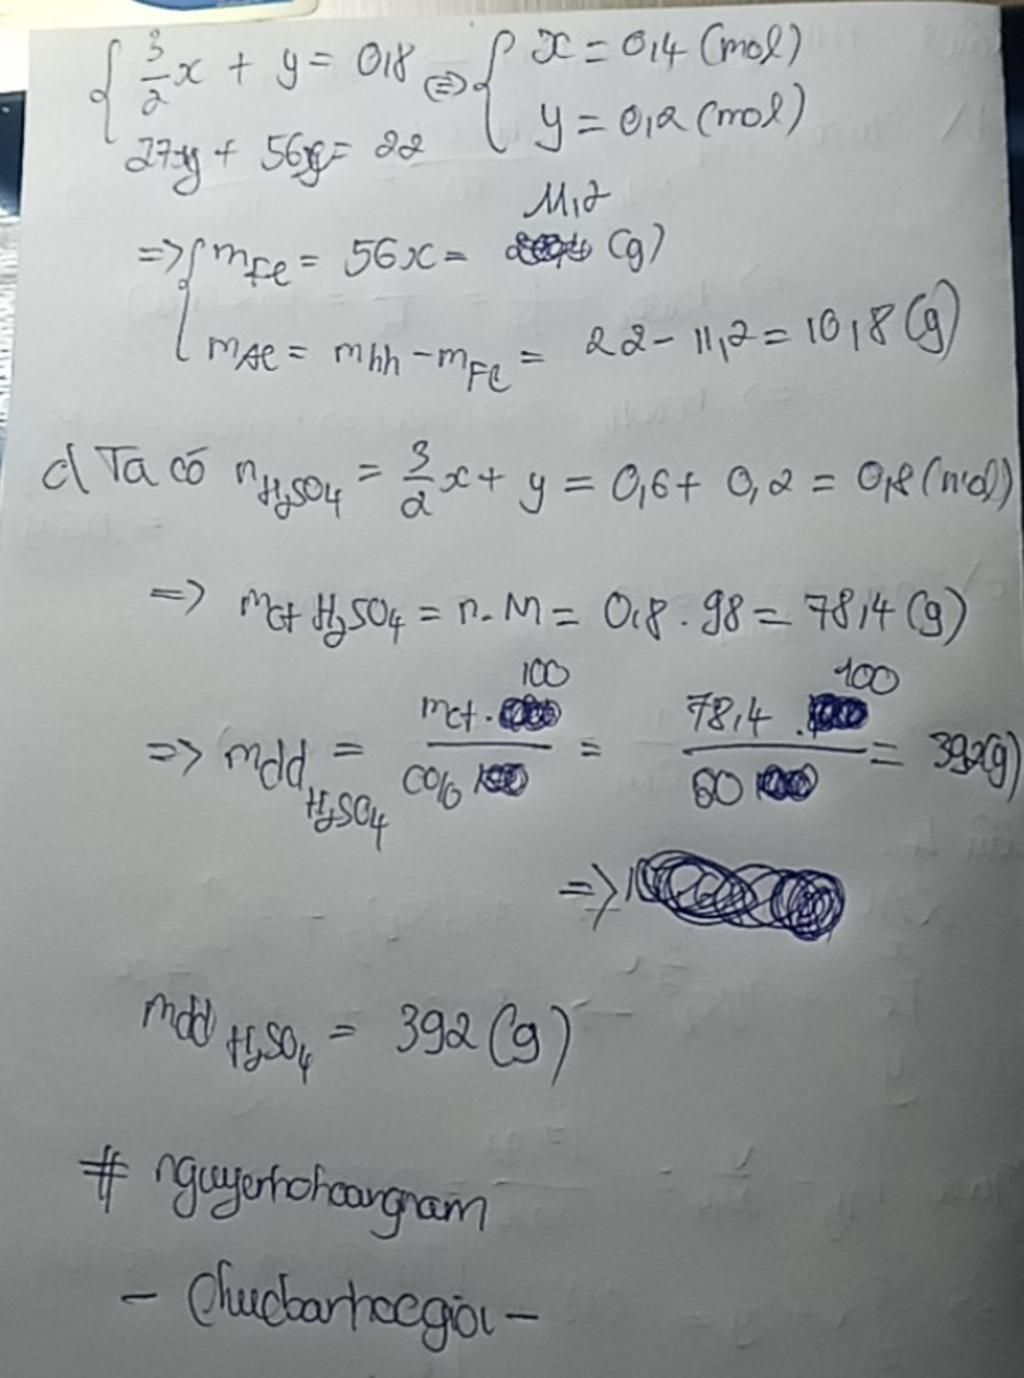 { 3/2 x + y = 0,8 <=> { x = 0,4 (mol)
27x + 56y = 22 y = 0,2 (mol)
11,2
=> { mFe = 56x = (g)
mAl = mhh - mFe = 22 - 11,2 = 10,8 (g)
d Ta có nH2SO4 = 3/2 x + y = 0,6 + 0,2 = 0,8 (mol)
=> mct H2SO4 = n. M = 0,8 . 98 = 78,4 (g)
=> mdd H2SO4 = mct . 100 / C% = 78,4 . 100 / 20 = 392(g)
=>
mdd H2SO4 = 392 (g)
# nguyenhohoangnam
- Chucbanhocgioi -